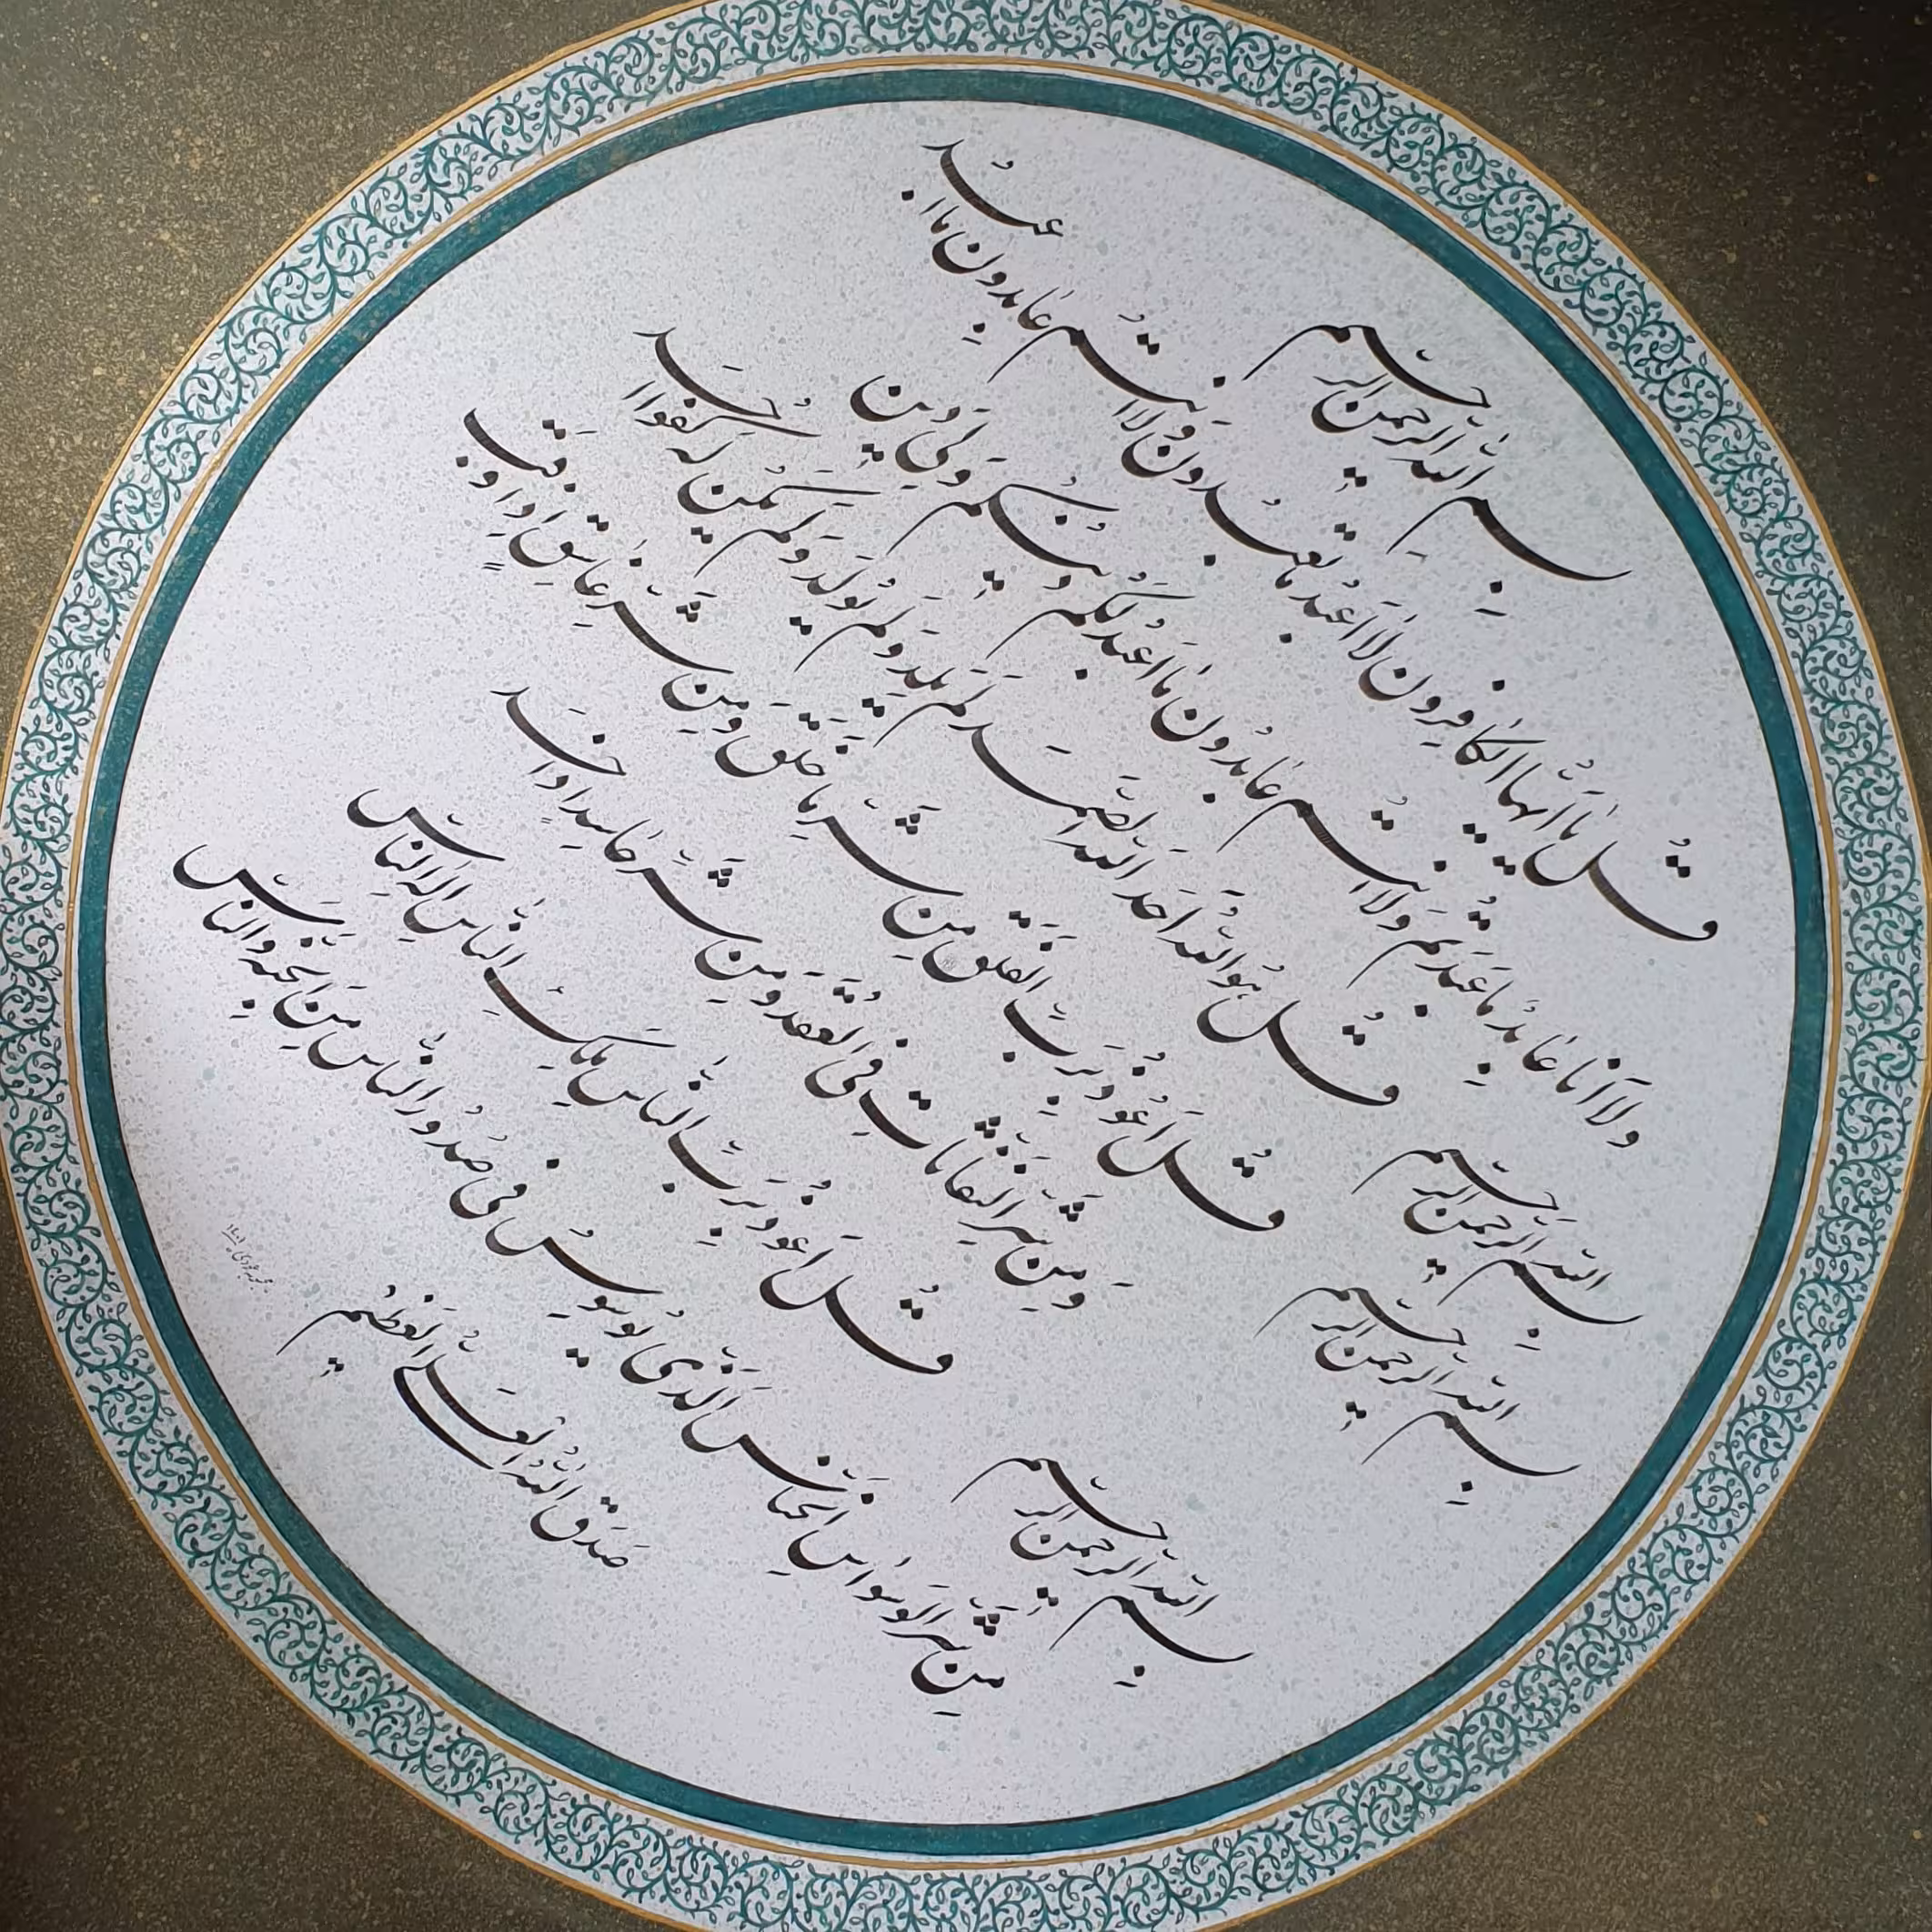 بسم الله الرحمن الرحیم
قل یا ایها الکافرون لا اعبد ما تعبدون ولا انتم عابدون ما اعبد
ولا انا عابد ما عبدتم ولا انتم عابدون ما اعبد لکم دینکم ولی دین
بسم الله الرحمن الرحیم
قل هو الله احد الله الصمد لم یلد ولم یولد ولم یکن له کفوا احد
بسم الله الرحمن الرحیم
قل اعوذ برب الفلق من شر ما خلق ومن شر غاسق اذا وقب
ومن شر النفاثات فی العقد ومن شر حاسد اذا حسد
بسم الله الرحمن الرحیم
قل اعوذ برب الناس ملک الناس اله الناس
من شر الوسواس الخناس الذی یوسوس فی صدور الناس من الجنه والناس
صدق الله العلی العظیم
۱۴۰۱